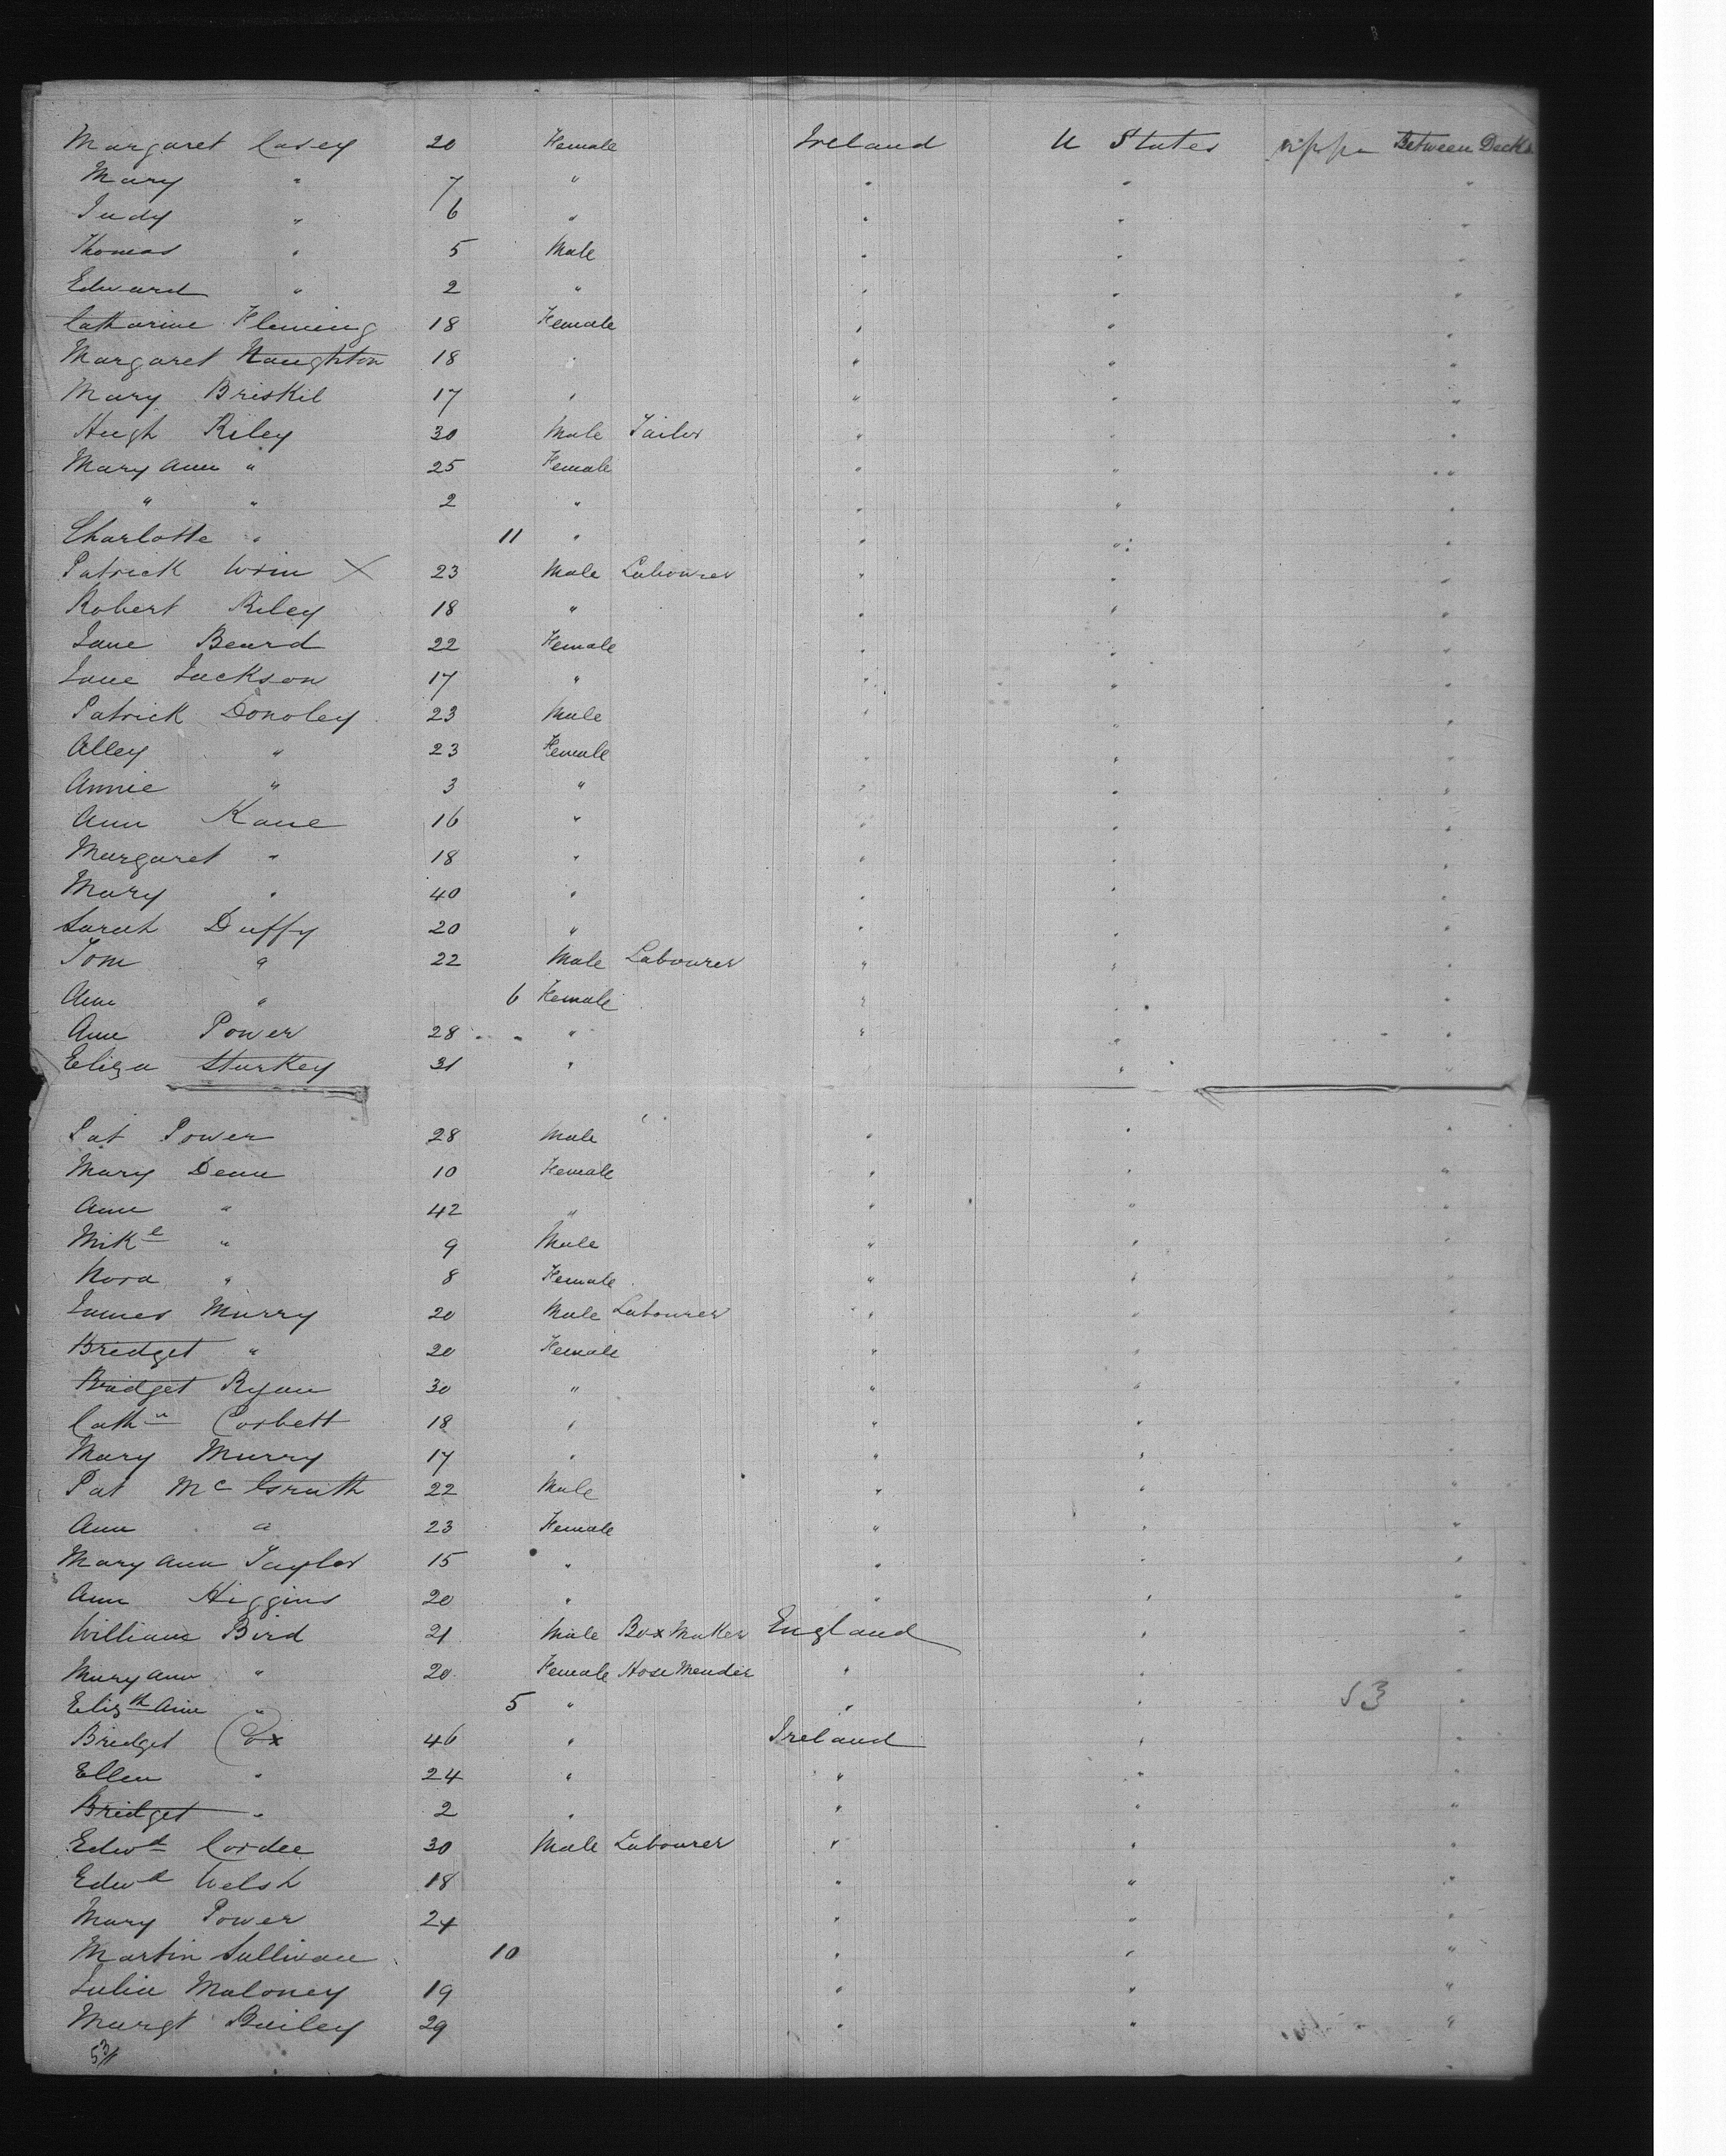 Margaret Casey 20 Female Ireland U States Between Decks
Mary " 7 " " " "
Judy " 6 " " " "
Thomas " 5 Male " " "
Edward " 2 " " " "
Catharine Fleming 18 Female " " "
Margaret Naughton 18 " " " "
Mary Briskil 17 " " " "
Hugh Riley 30 Male Tailor " " "
Mary Ann " 25 Female " " "
" " 2 " " " "
Charlotte " 11 " " " "
Patrick Wrin X 23 Male Labourer " " "
Robert Riley 18 " " " "
Jane Beard 22 Female " " "
Jane Jackson 17 " " " "
Patrick Donoley 23 Male " " "
Alley " 23 Female " " "
Annie " 3 " " " "
Ann Kane 16 " " " "
Margaret " 18 " " " "
Mary " 40 " " " "
Sarah Duffy 20 " " " "
Tom " 22 Male Labourer " " "
Ann " 6 Female " " "
Ann Power 28 " " " "
Eliza Sturkey 31 " " "
Pat Power 28 Male " " "
Mary Dean 10 Female " " "
Ann " 42 " " " "
Mike " 9 Male " " "
Nora " 8 Female " " "
James Murry 20 Male Labourer " " "
Bridget " 20 Female " " "
Bridget Ryan 30 " " " "
Cathn Corbett 18 " " " "
Mary Murry 17 " " " "
Pat McGrath 22 Male " " "
Ann " 23 Female " " "
Mary Ann Taylor 15 " " " "
Ann Higgins 20 " " " "
William Bird 21 Male Box Maker England " "
Mary Ann " 20 Female Hose Mender " " "
Elizth Ann " 5 " " " 53 "
Bridget Cox 46 " Ireland " "
Ellen " 24 " " " "
Bridget " 2 " " " "
Edwd Cordee 30 Male Labourer " " "
Edwd Welsh 18 " " "
Mary Power 24 " " "
Martin Sullivan 10 " " "
Julia Maloney 19 " " "
Margt Bailey 29 " " "
53